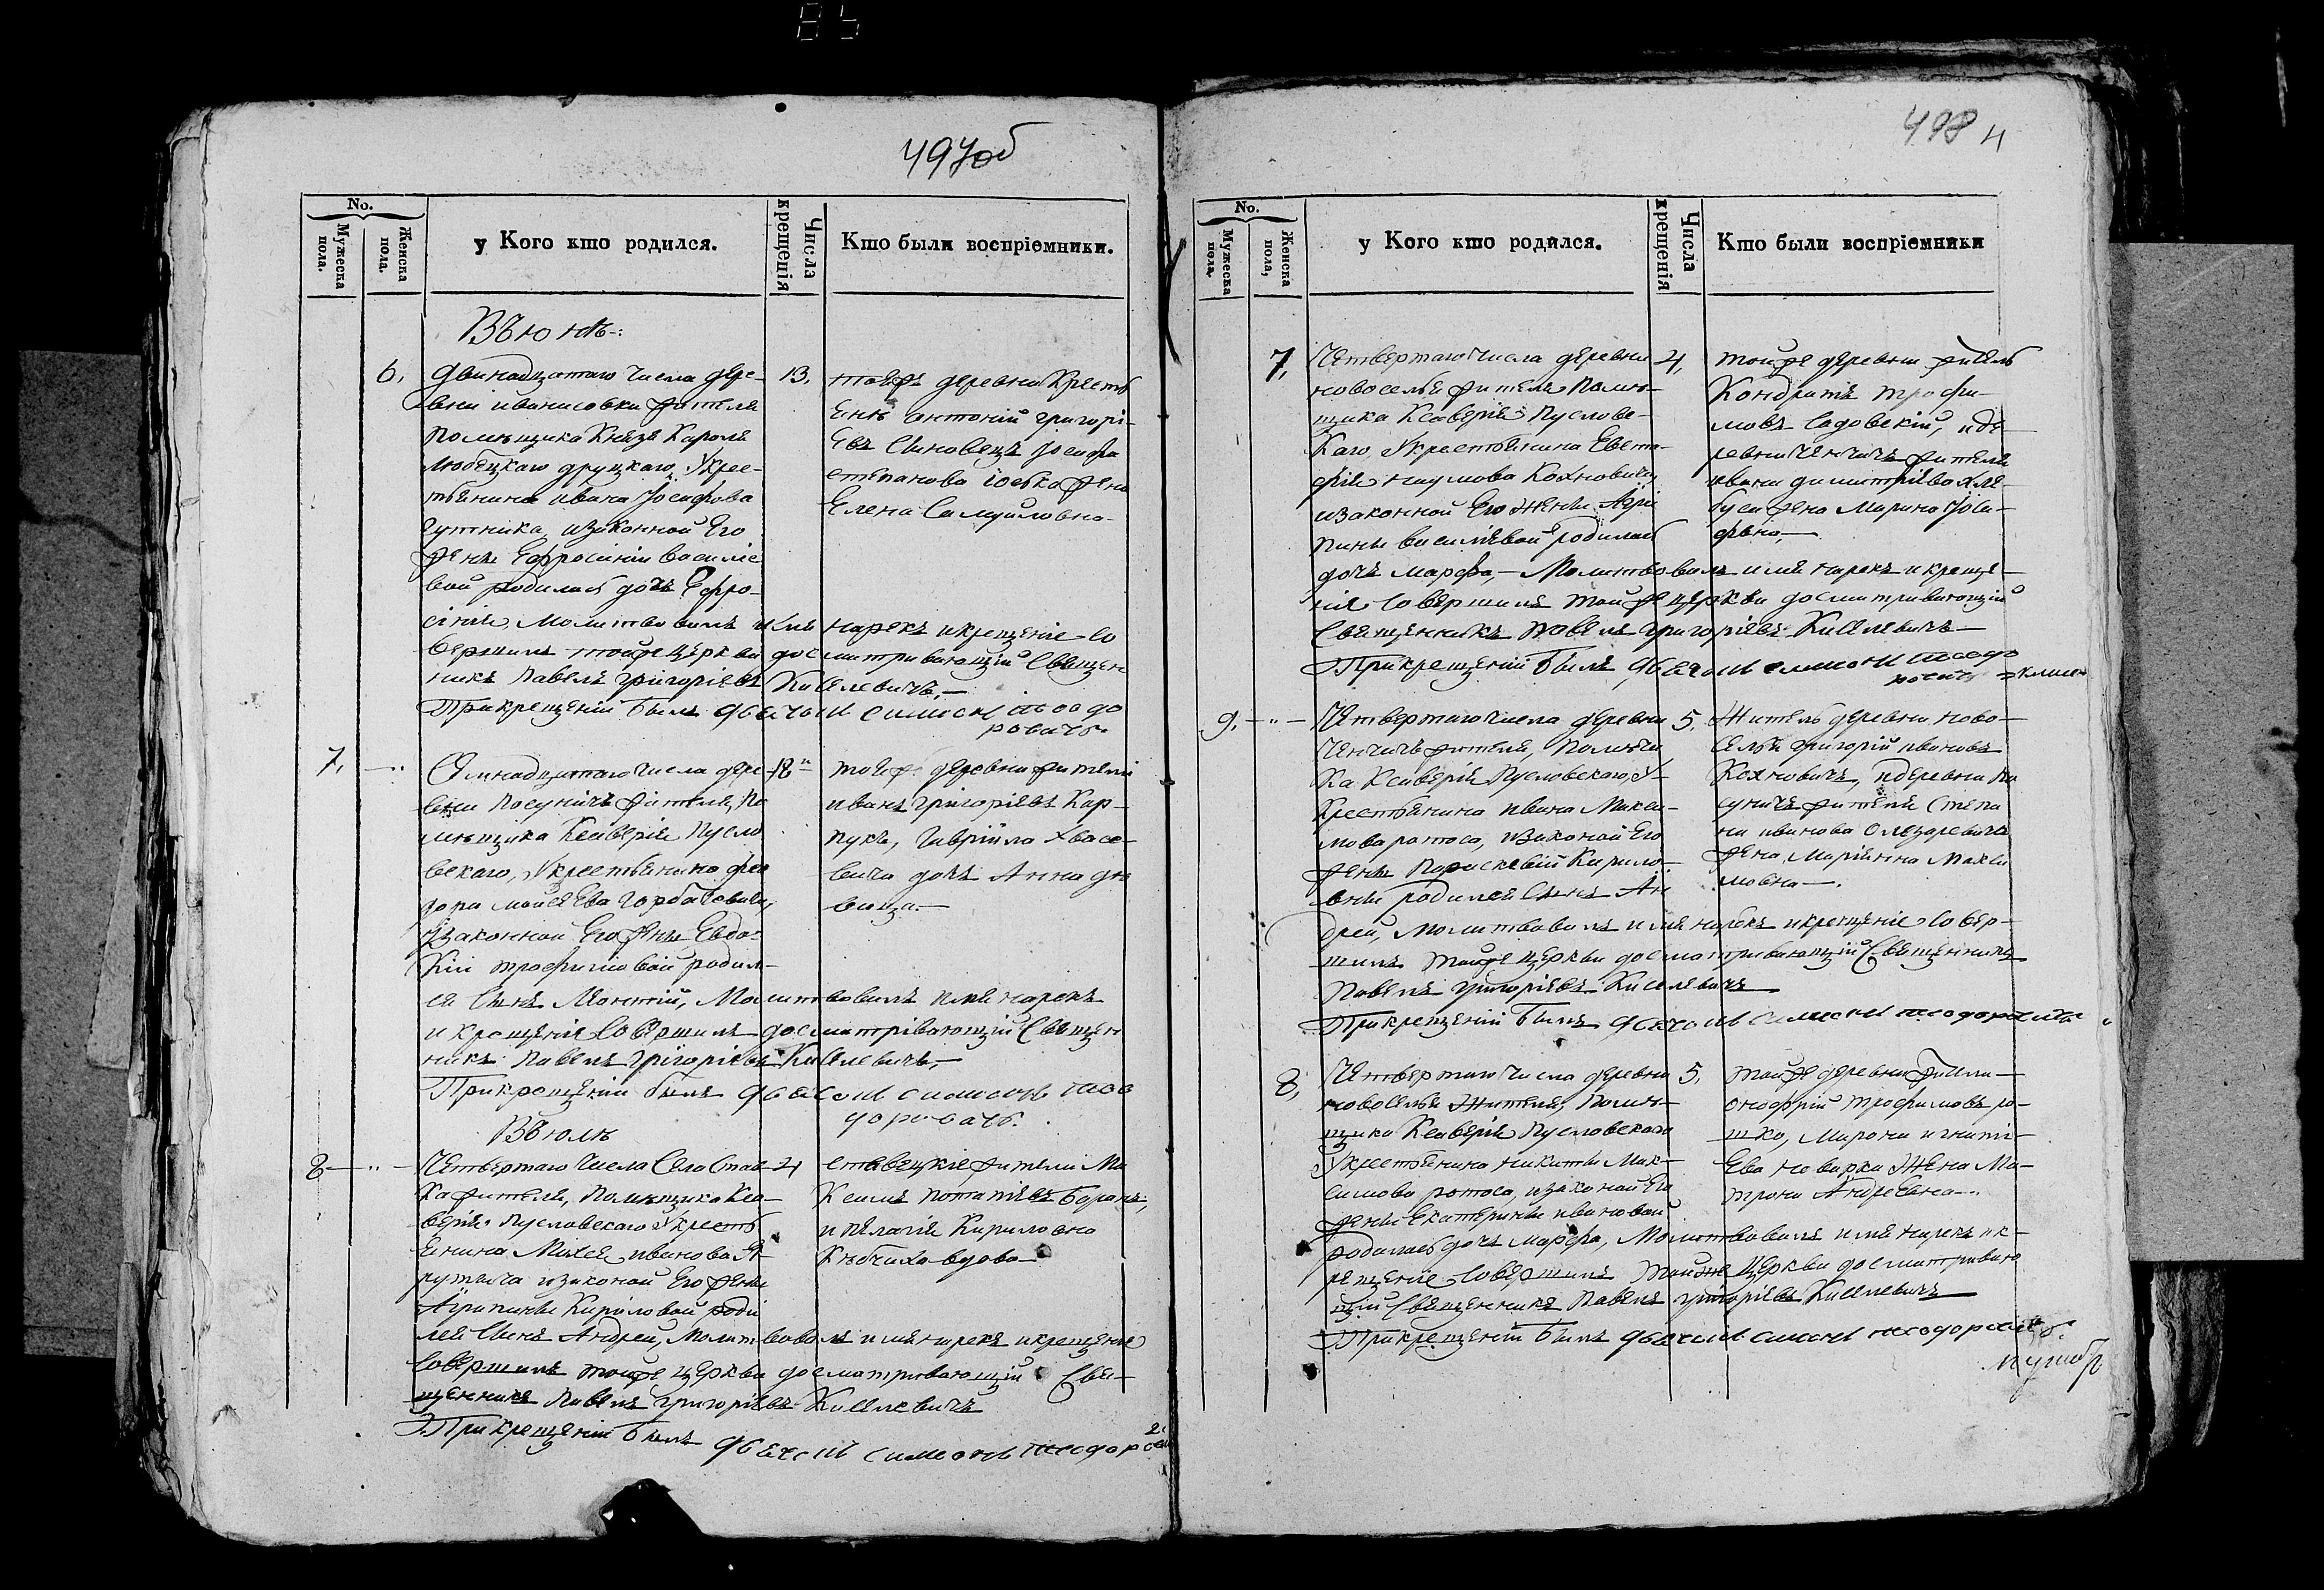 497об
No.
Мужеска пола.
Женска пола.
у Кого кто родился.
Числа крещенія
Кто были воспріемники.
Въ юнѣ:
6.
двинадцатаго числа дере-
вни иванисовки жителя
помѣщика Князя Кароля
Любецкаго друцкаго, Укрес-
тьянина ивана Іосафова
гутника, изаконной Его
жены Ефросиніи василіе
вой родилась дочь Ефро-
сінія, Молитвовалъ имя нарекъ икрещеніе со
вершилъ тойже церкви досматривающій Священ
никъ Павелъ григоріевъ Киселевичъ,—
При крещеніи былъ дьячокъ Симеонъ теодо
ровичъ.
13.
тойже деревни Кресть
янъ антоній григорі-
евъ Синовецъ, Іосифа
степанова іоська жена
Елена Самуиловна
7.
Семнадцатаго числа дере-
вни посуничъ жителя, по
мѣщика Ксаверія Пусло
вскаго, Укрестьянина фео
дора моисеева горбачевича,
изаконной Его жены Евдо-
кіи трофимовой родил-
ся Сынъ Леонтій, Молитвовалъ имя нарекъ
и крещеніе Совершилъ досматривающій Священ
никъ Павелъ григоріевъ Киселевичъ,—
При крещеніи былъ дьячокъ Симеонъ теоо
доровичъ.
18
тойже деревни жители
иванъ григоріевъ Кар-
пукъ, гаврііла хвасе-
вича дочь Анна дѣ
вица.—
Въ юлѣ
8
Четвертаго Числа Села Став
ка жителя, помѣщика Кса-
верія Пусловскаго Укресть
янина Михея иванова Я-
рутича изаконой Его жены
Агрипины Кириловой роди
лся Сынъ Андрей, Молитвовалъ имя нарекъ икрещеніе
Совершилъ тойже церкви досматривающій Свя-
щенникъ Павелъ григоріевъ Киселевичъ
При крещеніи былъ дьячокъ Симеонъ теодоро
4
ставецкіе жители Ма
ксимъ потапіевъ баранъ,
и пелагія Кирилловна
вдова
498
4
No.
Мужеска пола.
Женска пола,
у Кого кто родился.
Числа крещенія
Кто были воспріемники
7,
Четвертаго числа деревни
новоселья жителя помѣ-
щика Ксаверія Пуслове-
каго, Укрестьянина Евста-
фія наумова Кохновича,
изаконной Его жены Агри
пины василіевой родилась
дочь марфа,— Молитвовалъ имя нарекъ икреще-
ніе Совершилъ тойже церкви досматривающій
Священникъ Павелъ григоріевъ Киселевичъ—
При крещеніи былъ дьячокъ Симеонъ теодо
ровичъ
4,
тойже деревни житель
Кондратъ трофи-
мовъ Садовскій, иде
ревни Ченчичъ жителя
ивана димитріева хле-
буса жена Марина Іоси-
фовна,—
9.
Четвертаго числа деревни
Ченчичъ жителя, помѣщи
ка Ксаверія Пусловскаго, У-
крестьянина ивана Макси-
мова ратоса, изаконой Его
жены Параскевіи Кирило-
вны родился Сынъ Ан
дрей, Молитвовалъ имя нарекъ икрещеніе Совер-
шилъ тойже церкви досматривающій Священникъ
Павелъ григоріевъ Киселевичъ
При крещеніи былъ дьячокъ Симеонъ теодоровичъ
5.
Житель деревни ново-
селья григорій ивановъ
Кохновичъ, идеревни по
суничъ жителя Степа
на иванова
жена, Маріянна Макси
мовна—.
8,
Четвертаго числа деревни
новоселья Жителя, помѣ-
щика Ксаверія Пусловскаго
Укрестьянина никиты Мак-
симова ратоса, изаконой Его
жены Екатерины ивановой
родилась дочь марфа, Молитвовалъ имя нарекъ ик-
рещеніе Совершилъ тойже церкви досматриваю
щій Священникъ Павелъ григоріевъ Киселевичъ
При крещеніи былъ дьячокъ Симеонъ теодоровичъ.
5,
тойже деревни жители
онофрій трофимовъ ро-
шко, Мирона игнаті-
ева новарки Жена Ма-
трона Андреевна—.